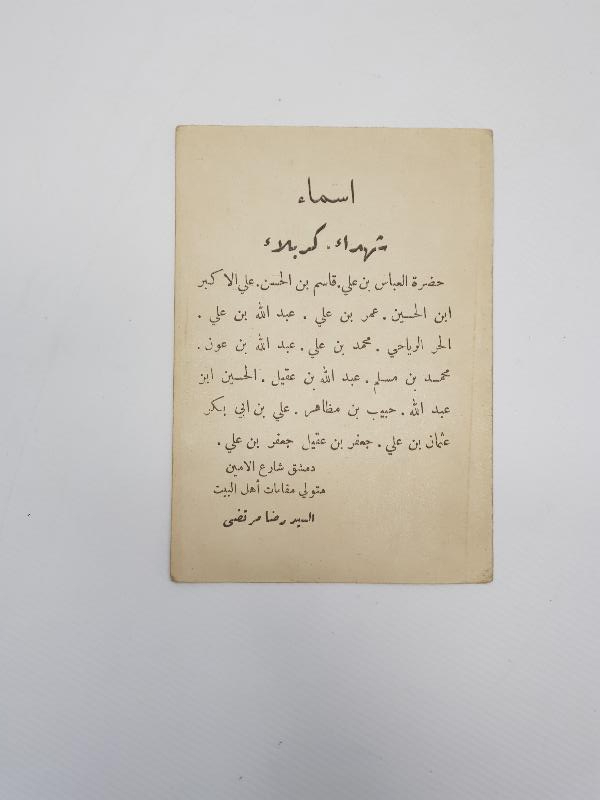 اسماء
شهداء. كربلاء
حضرة العباس بن علي. قاسم بن الحسن. علي الاكبر
ابن الحسين. عمر بن علي. عبد الله بن علي.
الحر الرياحي. محمد بن علي. عبد الله بن عون.
محمد بن مسلم. عبد الله بن عقيل. الحسين ابن
عبد الله. حبيب بن مظاهر. علي بن ابي بكر
عثمان بن علي. جعفر بن عقيل جعفر بن علي.
دمشق شارع الامين
متولي مقامات أهل البيت
السيد رضا مرتضى